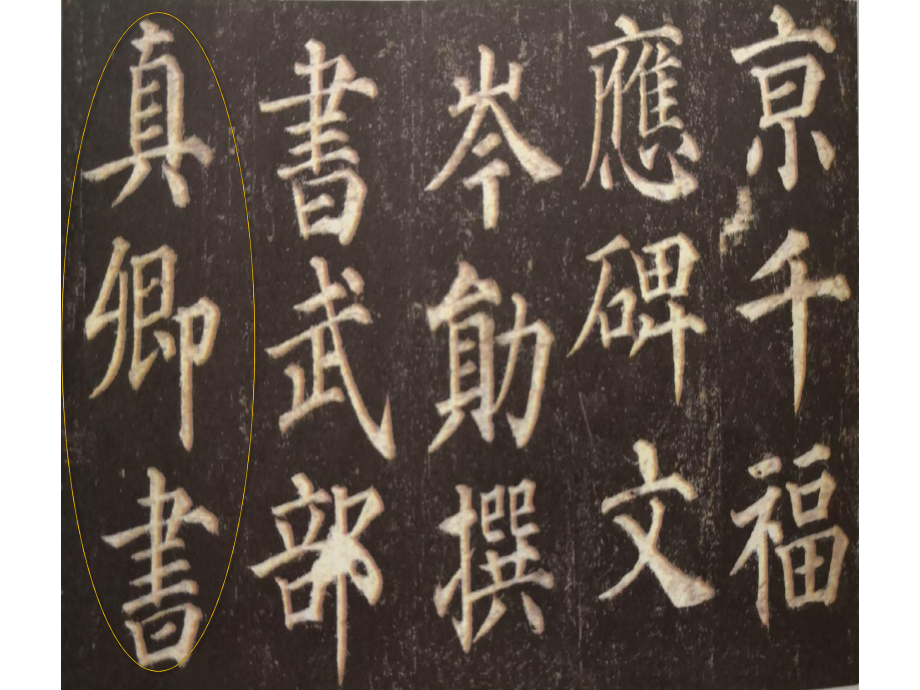 京千福
應碑文
岑勛撰
書武部
真卿書